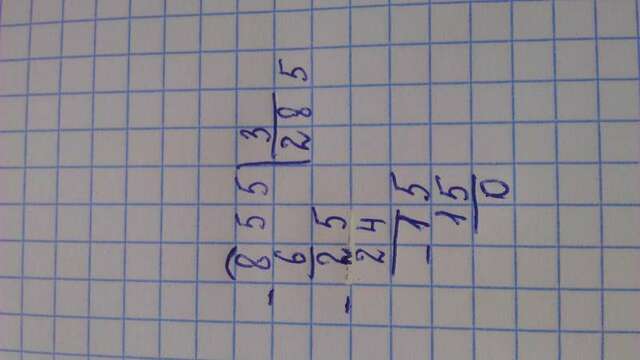 - 855 | 3
6 | 285
- 25
24
- 15
15
0